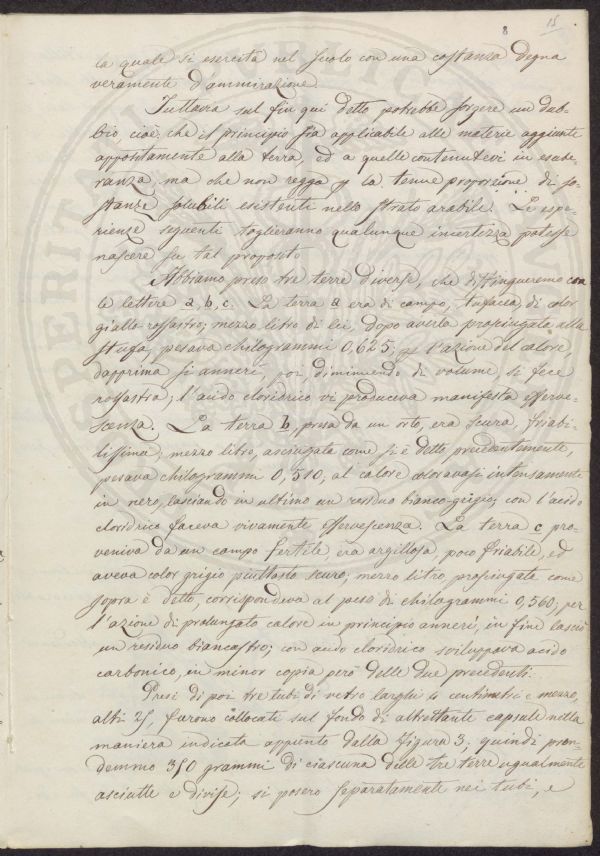 8 15
la quale si esercita nel suolo con una costanza degna
veramente d'ammirazione.
Tuttavia sul fin qui detto potrebbe sorgere un dub-
bio cioè, che il principio sia applicabile alle materie aggiunte
appositamente alla terra, ed a quelle contenutevi in esube-
ranza, ma che non regga p la tenue proporzione di so-
stanze solubili esistenti nello strato arabile. Le espe-
rienze seguenti toglieranno qualunque incertezza potesse
nascere su tal proposito.
Abbiamo preso tre terre diverse, che distingueremo con
le lettere a, b, c. La terra a era di campo, tufacea, di color
giallo rossastro; mezzo litro di lei, dopo averla prosciugata alla
stufa, pesava chilogrammi 0,625; p l'azione del calore,
dapprima si annerì, poi, diminuendo di volume, si fece
rossastra; l'acido cloridrico vi produceva manifesta efferve-
scenza. La terra b, presa da un orto, era scura, friabi-
lissima; mezzo litro, asciugata come si è detto precedentemente,
pesava chilogrammi 0,510; al calore coloravasi intensamente
in nero, lasciando in ultimo un residuo bianco-grigio; con l'acido
cloridrico faceva vivamente effervescenza. La terra c pro-
veniva da un campo fertile, era argillosa, poco friabile, ed
aveva color grigio piuttosto scuro; mezzo litro, prosciugata come
sopra è detto, corrispondeva al peso di chilogrammi 0,560; per
l'azione di prolungato calore in principio annerì, in fine lasciò
un residuo biancastro; con acido cloridrico sviluppava acido
carbonico, in minor copia però delle due precedenti.
Presi di poi tre tubi di vetro larghi 4 centimetri e mezzo,
alti 25, furono collocati sul fondo di altrettante capsule nella
maniera indicata appunto dalla figura 3; quindi pren-
demmo 350 grammi di ciascuna delle tre terre ugualmente
asciutte e divise; si posero separatamente nei tubi, e